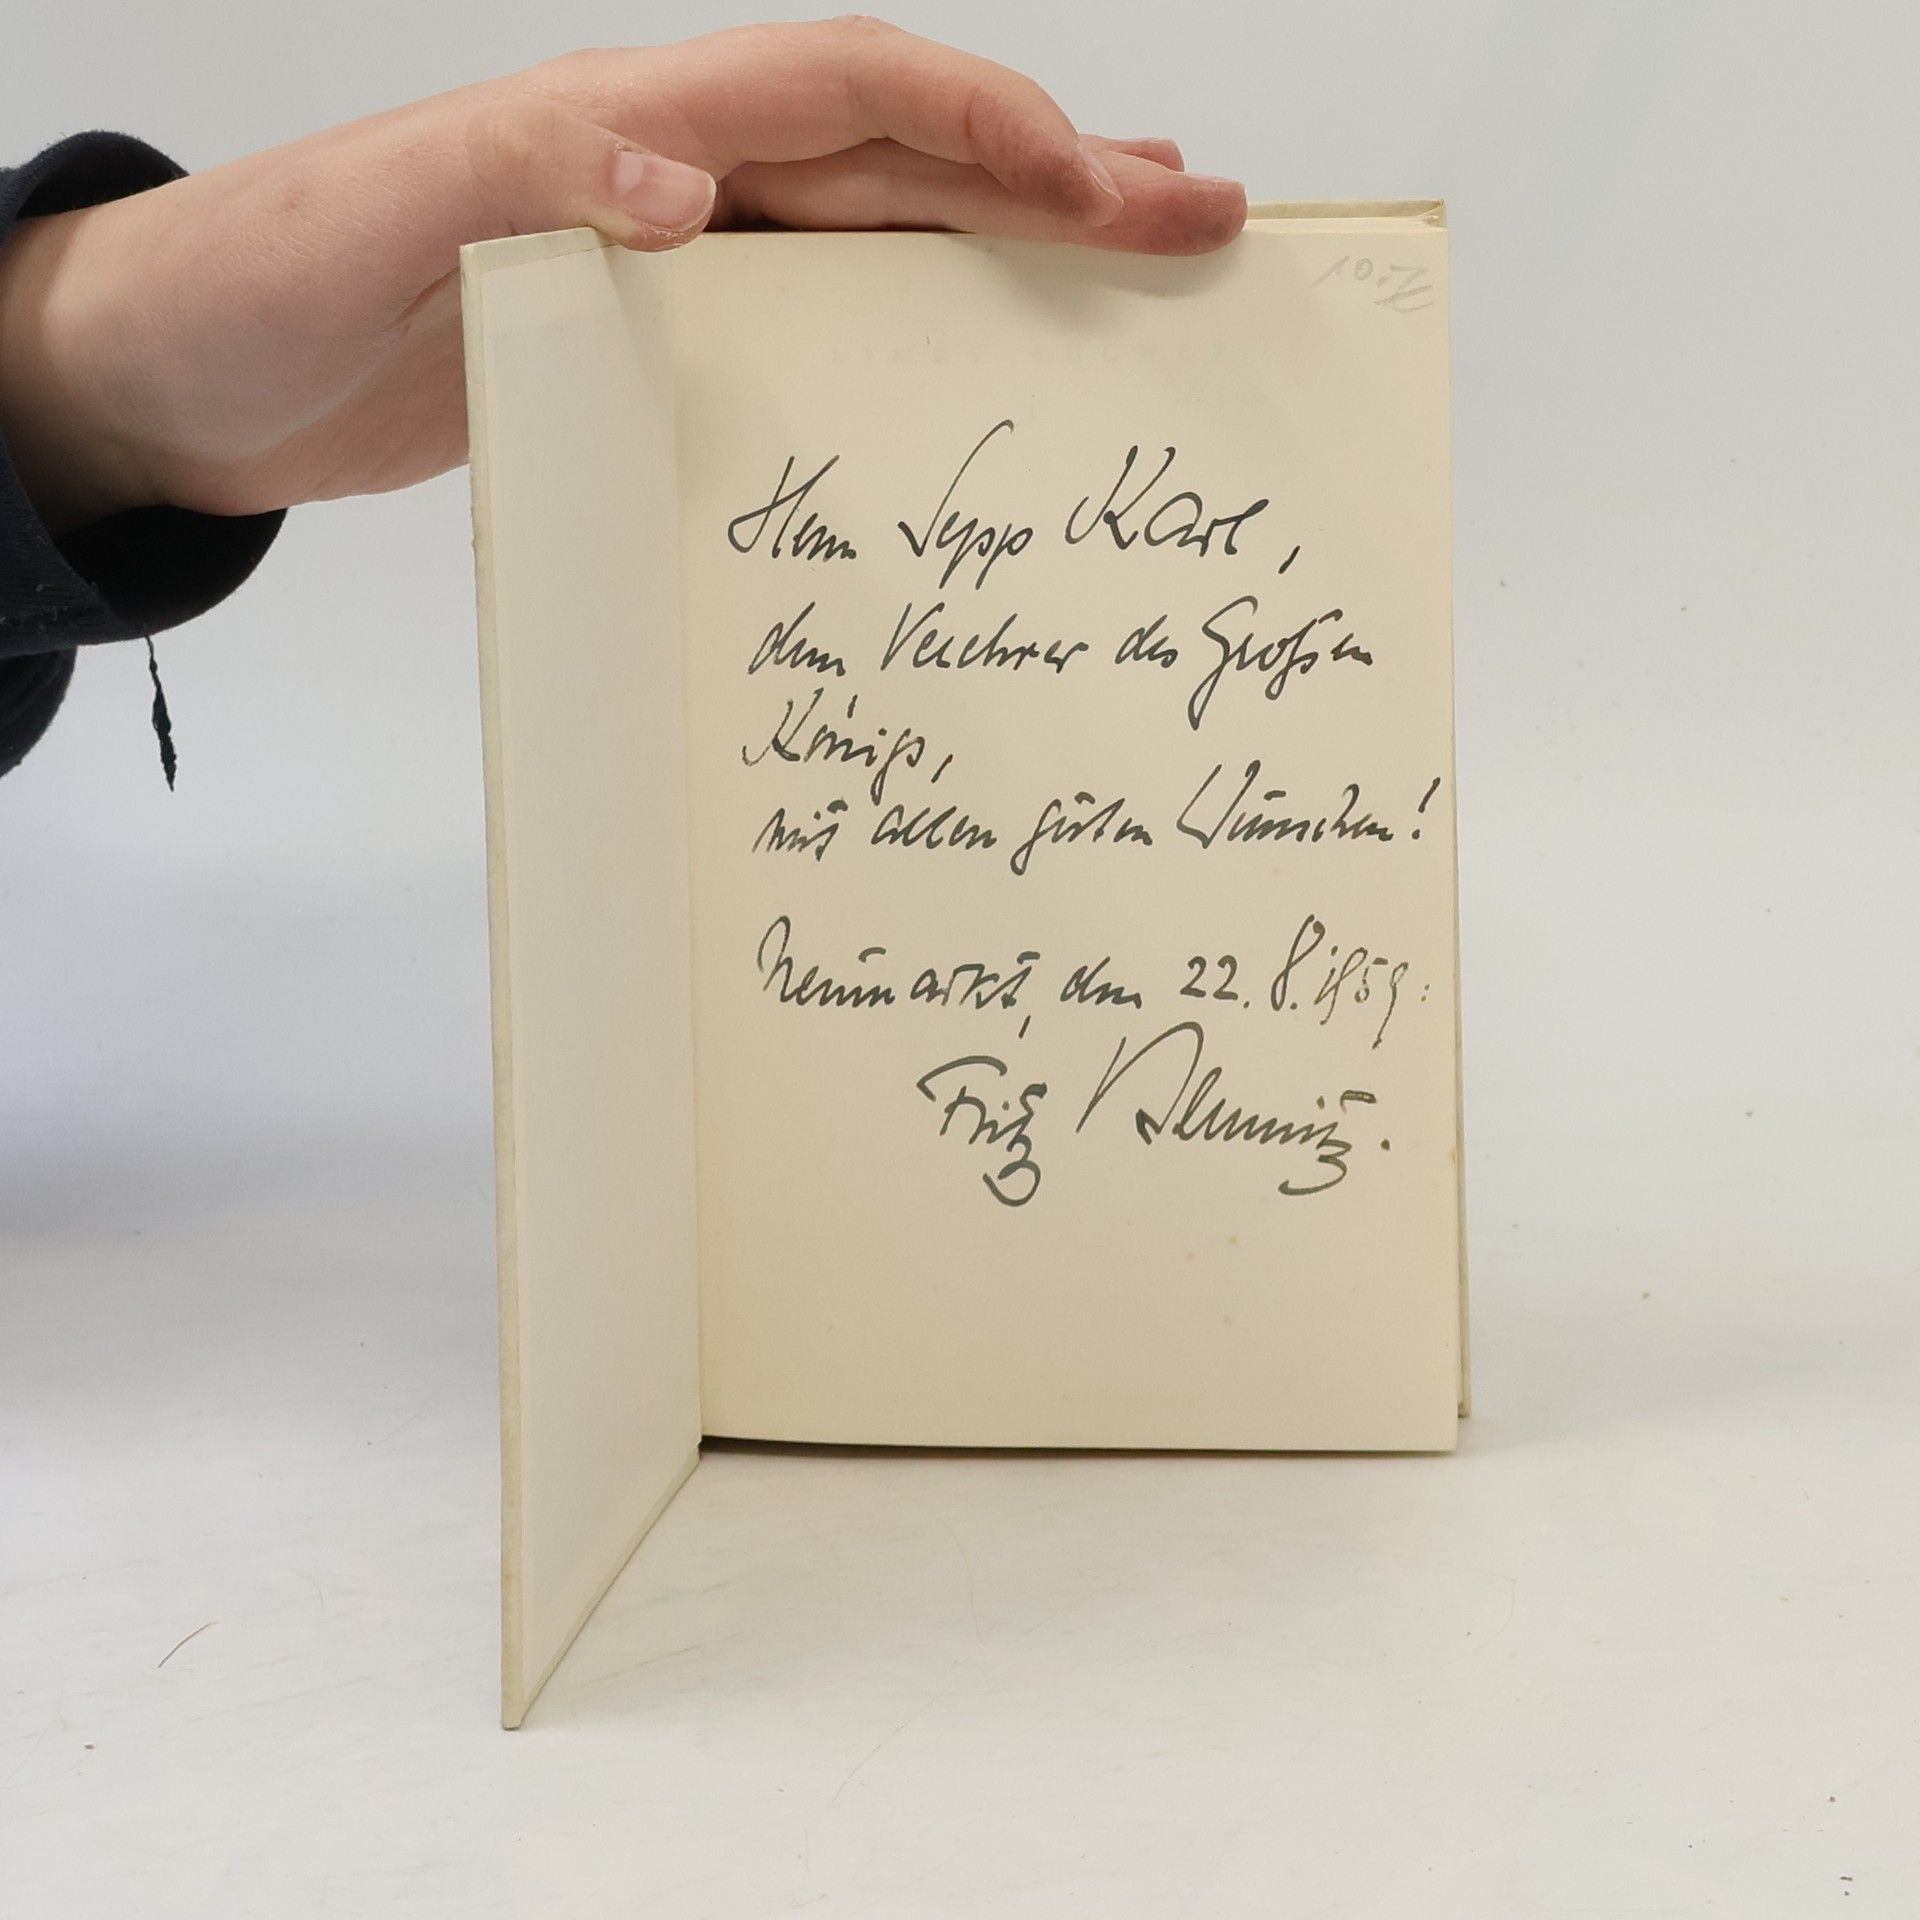 10.-
Herrn Sepp Karl,
dem Verehrer des Großen
Königs,
mit allen guten Wünschen!
Neumarkt, den 22.8.1959:
Fritz